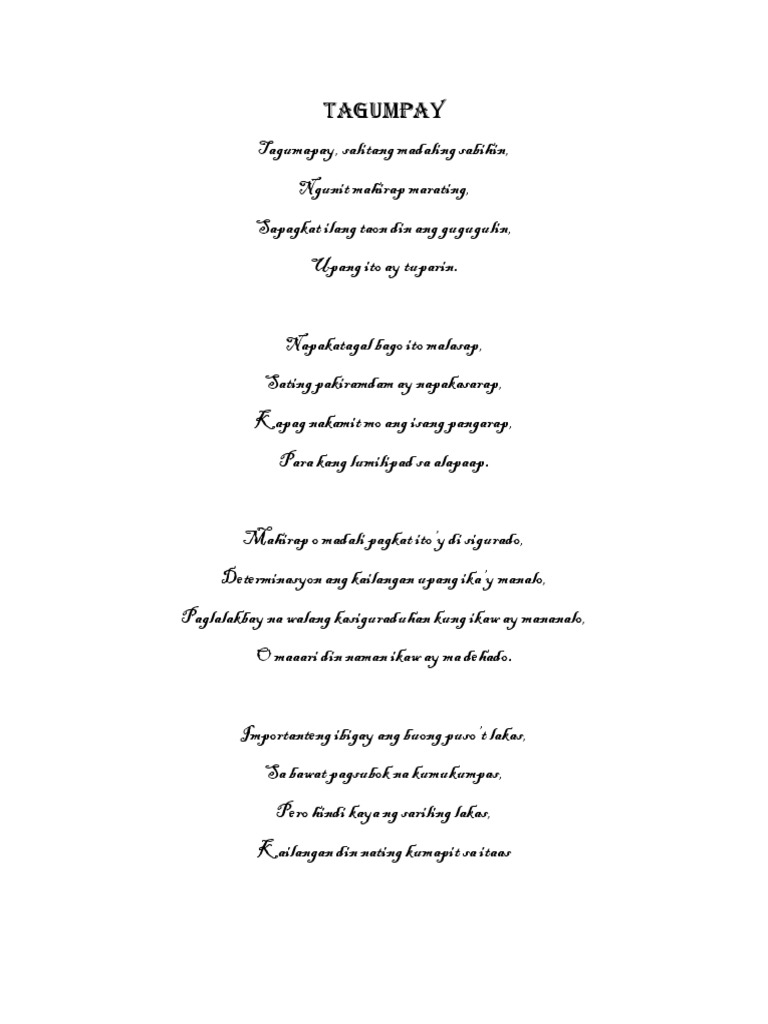 TAGUMPAY
Tagumapay, salitang madaling sabihin,
Ngunit mahirap marating,
Sapagkat ilang taon din ang gugugulin,
Upang ito ay tuparin.
Napakatagal bago ito malasap,
Sating pakiramdam ay napakasarap,
Kapag nakamit mo ang isang pangarap,
Para kang lumilipad sa alapaap.
Mahirap o madali pagkat ito'y di sigurado,
Determinasyon ang kailangan upang ika'y manalo,
Paglalakbay na walang kasiguraduhan kung ikaw ay mananalo,
O maaari din naman ikaw ay ma dehado.
Importanteng ibigay ang buong puso't lakas,
Sa bawat pagsubok na kumukumpas,
Pero hindi kaya ng sariling lakas,
Kailangan din nating kumapit sa itaas